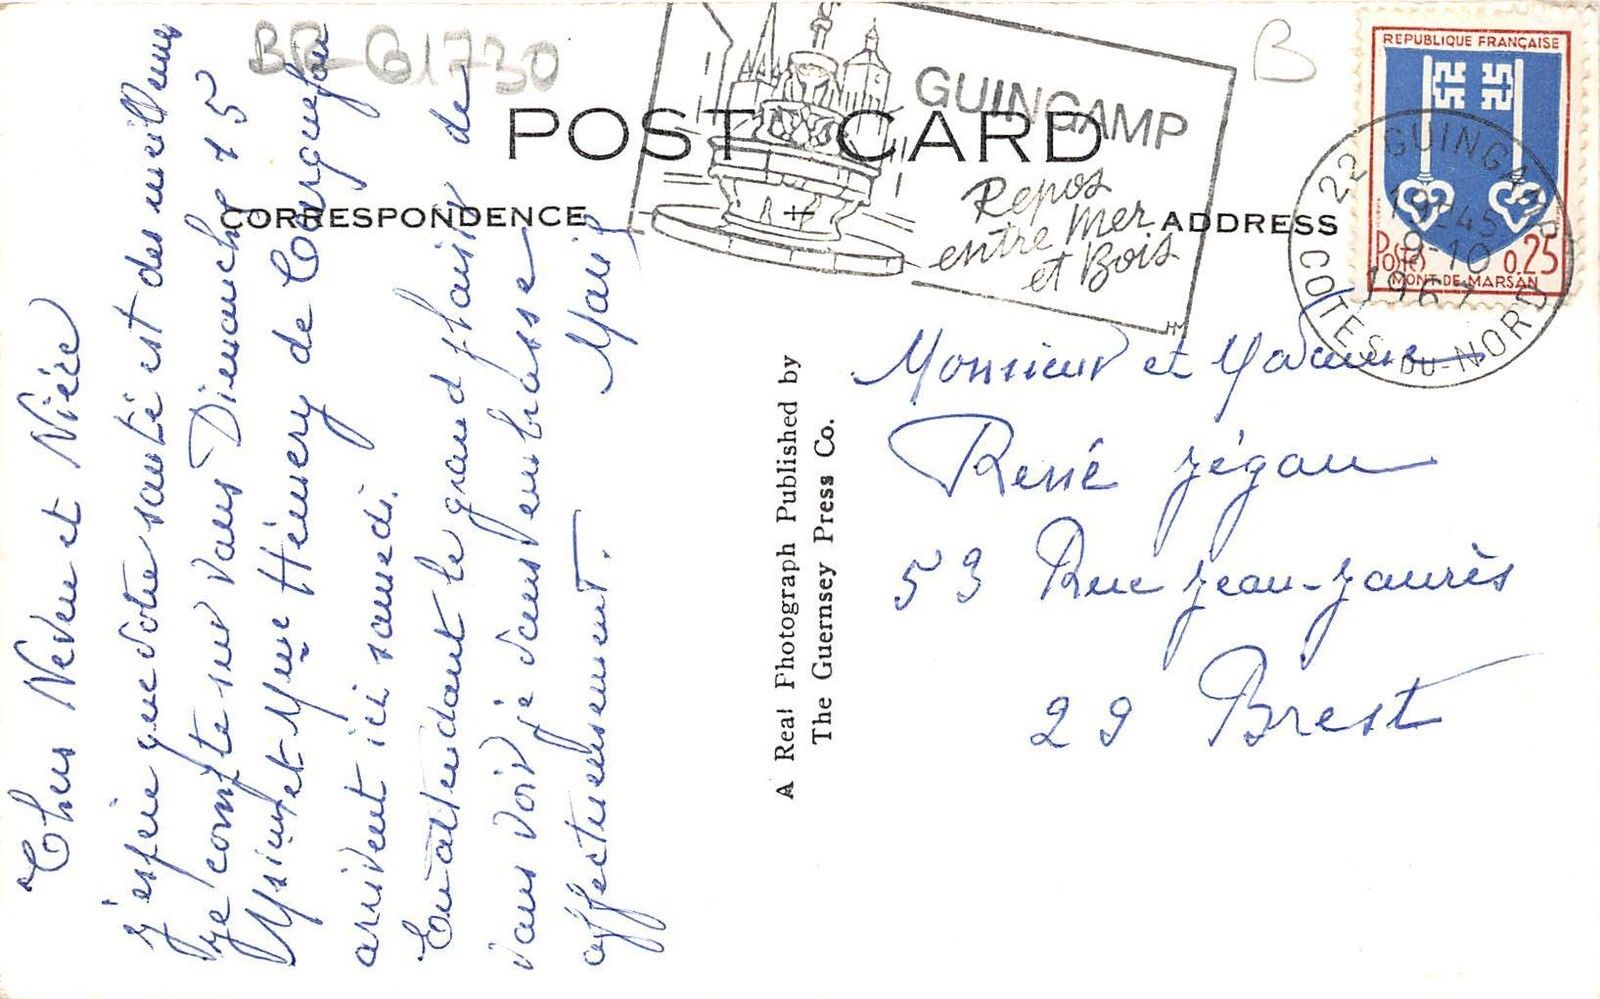 BR-G1730
B
POST CARD
CORRESPONDENCE
ADDRESS
GUINGAMP
Repos
entre Mer
et Bois
REPUBLIQUE FRANÇAISE
POSTES 0,25
MONT-DE-MARSAN
22 GUINGAMP
19H45
9-10
1967
COTES-DU-NORD
Chers Neveu et Nièce
j'espère que votre santé est des meilleures
je compte sur vous Dimanche 15
Msieur et Mme Hémery de
arrivent ici samedi.
En attendant le grand plaisir de
vous voir je vous embrasse
affectueusement.
A Real Photograph Published by
The Guernsey Press Co.
Monsieur et Madame
René Jégou
53 Rue Jean-Jaurès
29 Brest